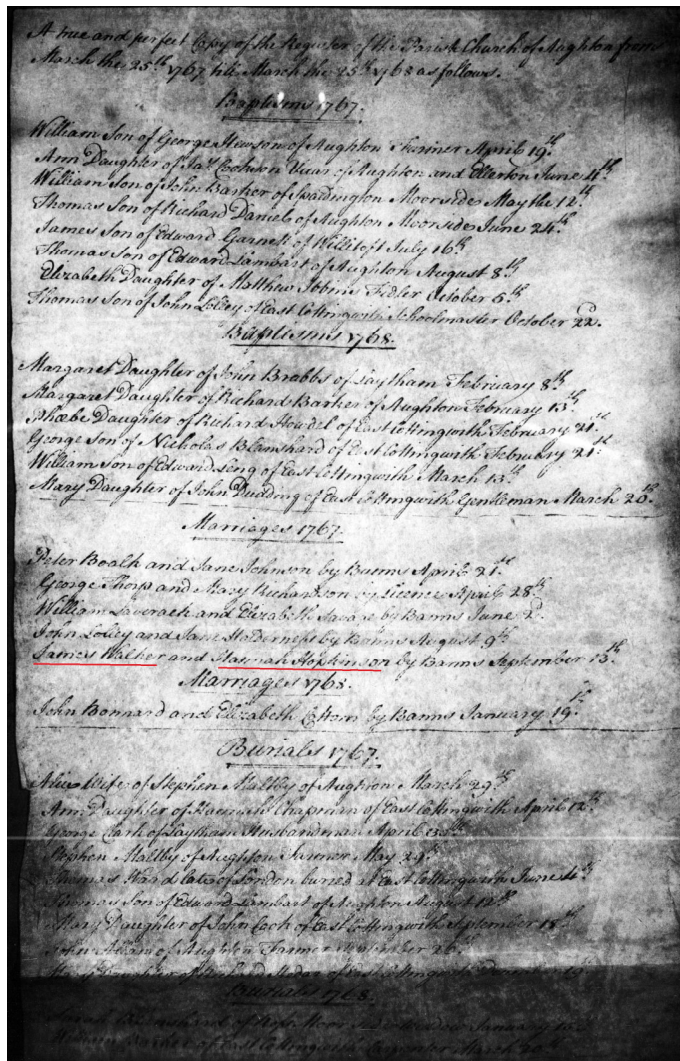 A true and perfect Copy of the Register of the Parish Church of Aughton from
March the 25th 1767 till March the 25th 1768 as follows.
Baptisms 1767.
William Son of George Hewson of Aughton Farmer April 19th
Ann Daughter of Jas Cockson Vicar of Aughton and Ellerton June 4th
William Son of John Barker of Spaldington Moorside May the 12th
Thomas Son of Richard Daniel of Aughton Moorside June 24th
James Son of Edward Garnett of Willitoft July 16th
Thomas Son of Edward Lambart of Aughton August 8th
Elizabeth Daughter of Matthew Fidler October 5th
Thomas Son of John Lolley of East Cottingwith Schoolmaster October 22d.
Baptisms 1768.
Margaret Daughter of John Brabbs of Laytham February 8th
Margaret Daughter of Richard Barker of Aughton February 13th
Phœbe Daughter of Richard Howdel of East Cottingwith February 21st
George Son of Nicholas Blanshard of East Cottingwith February 21st
William Son of Edward of East Cottingwith March 13th
Mary Daughter of John Dudding of East Cottingwith Gentleman March 20th.
Marriages 1767.
Peter and Jane Johnson by Banns April 21st
George Thorp and Mary Richardson by Licence April 28th
William Laverack and Elizabeth Savage by Banns June 2d.
John Lolley and Jane Holderness by Banns August 9th
James Walker and Hannah Hopkinson by Banns September 13th
Marriages 1768.
John Bonnard and Elizabeth by Banns January 19th
Burials 1767.
Alice Wife of Stephen Maltby of Aughton March 29th
Ann Daughter of Hannah Chapman of East Cottingwith April 12th
George Clark of Laytham Husbandman April
Stephen Maltby of Aughton Farmer May 29th
Thomas Ward late of London buried at East Cottingwith June 4th
Thomas Son of Edward Lambart of Aughton August 12th
Mary Daughter of John Cook of East Cottingwith September 18th
John of Aughton Farmer 26th
Daughter of Richard of East Cottingwith 19th
Burials 1768.
Sarah of Moor Widow January
William Barker of East Cottingwith Carpenter March 20th